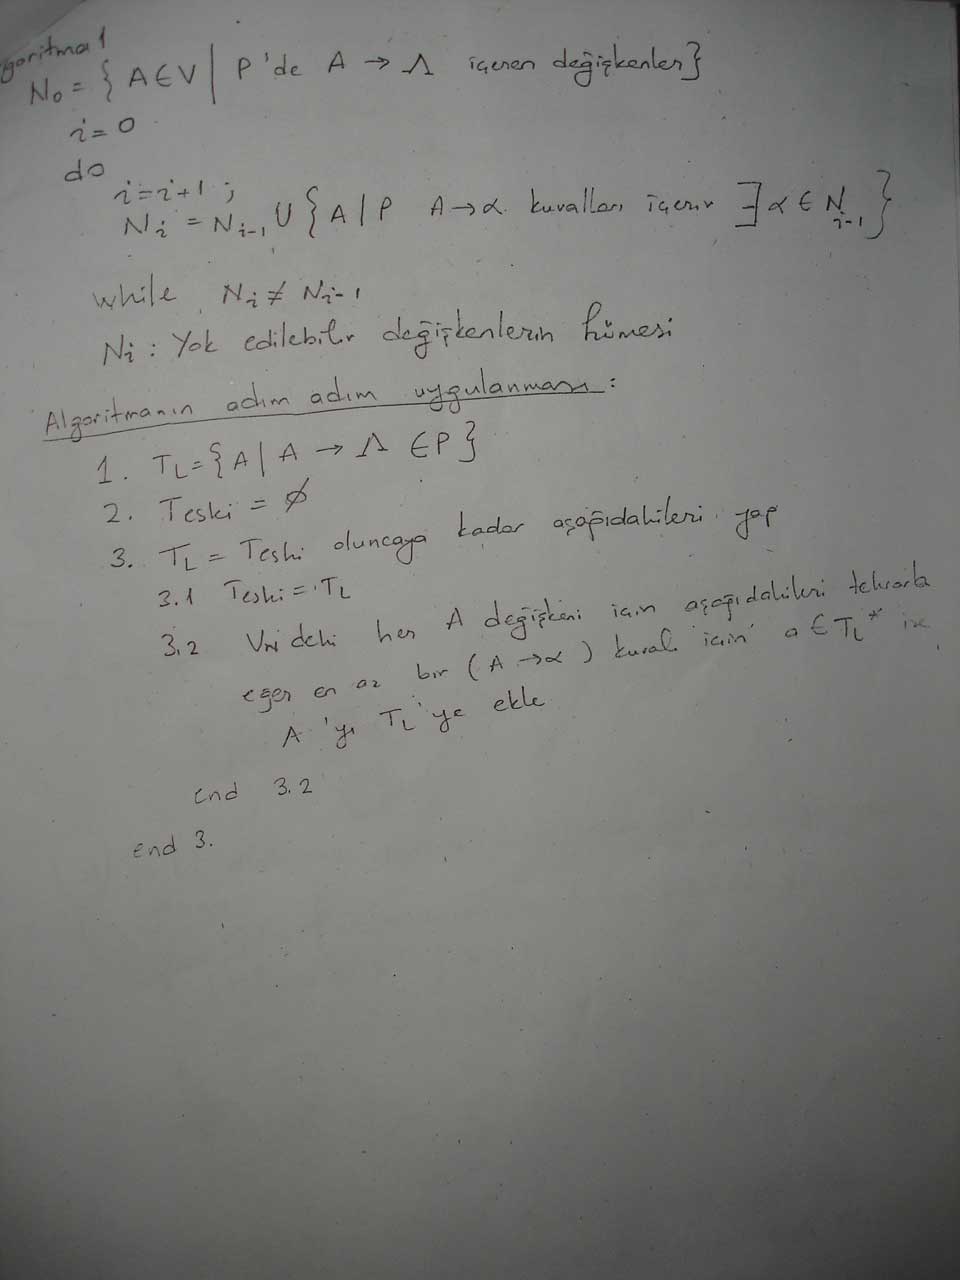 goritma 1
N₀ = { A∈V | P'de A → Λ içeren değişkenler}
i = 0
do
i = i+1 ;
Nᵢ = Nᵢ₋₁ ∪ { A | P A→α kuralları içerir ∃ α ∈ Nᵢ₋₁ }
while Nᵢ ≠ Nᵢ₋₁
Nᵢ : Yok edilebilir değişkenlerin kümesi
Algoritmanın adım adım uygulanması :
1. T_L = { A | A → Λ ∈P }
2. Teski = ∅
3. T_L = Teski oluncaya kadar aşağıdakileri yap
3.1 Teski = T_L
3.2 V deki her A değişkeni için aşağıdakileri tekrarla
eğer en az bir (A → α) kuralı için a ∈ T_L* ise
A 'yı T_L'ye ekle
end 3.2
end 3.